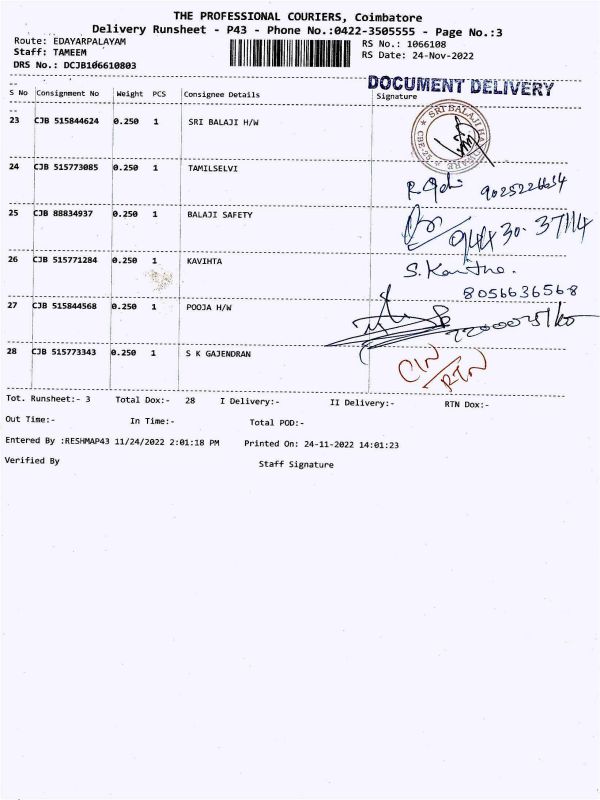 THE PROFESSIONAL COURIERS, Coimbatore
Delivery Runsheet - P43 - Phone No.:0422-3505555 - Page No.:3
Route: EDAYARPALAYAM
RS No.: 1066108
Staff: TAMEEM
RS Date: 24-Nov-2022
DRS No.: DCJB106610803
DOCUMENT DELIVERY
S No Consignment No Weight PCS Consignee Details Signature
23 CJB 515844624 0.250 1 SRI BALAJI H/W
SRI BALAJI HARDWARE
CBE-25
24 CJB 515773085 0.250 1 TAMILSELVI
25 CJB 88834937 0.250 1 BALAJI SAFETY
26 CJB 515771284 0.250 1 KAVIHTA
8056636568
27 CJB 515844568 0.250 1 POOJA H/W
28 CJB 515773343 0.250 1 S K GAJENDRAN
RTN
Tot. Runsheet:- 3 Total Dox:- 28 I Delivery:- II Delivery:- RTN Dox:-
Out Time:- In Time:- Total POD:-
Entered By :RESHMAP43 11/24/2022 2:01:18 PM Printed On: 24-11-2022 14:01:23
Verified By Staff Signature